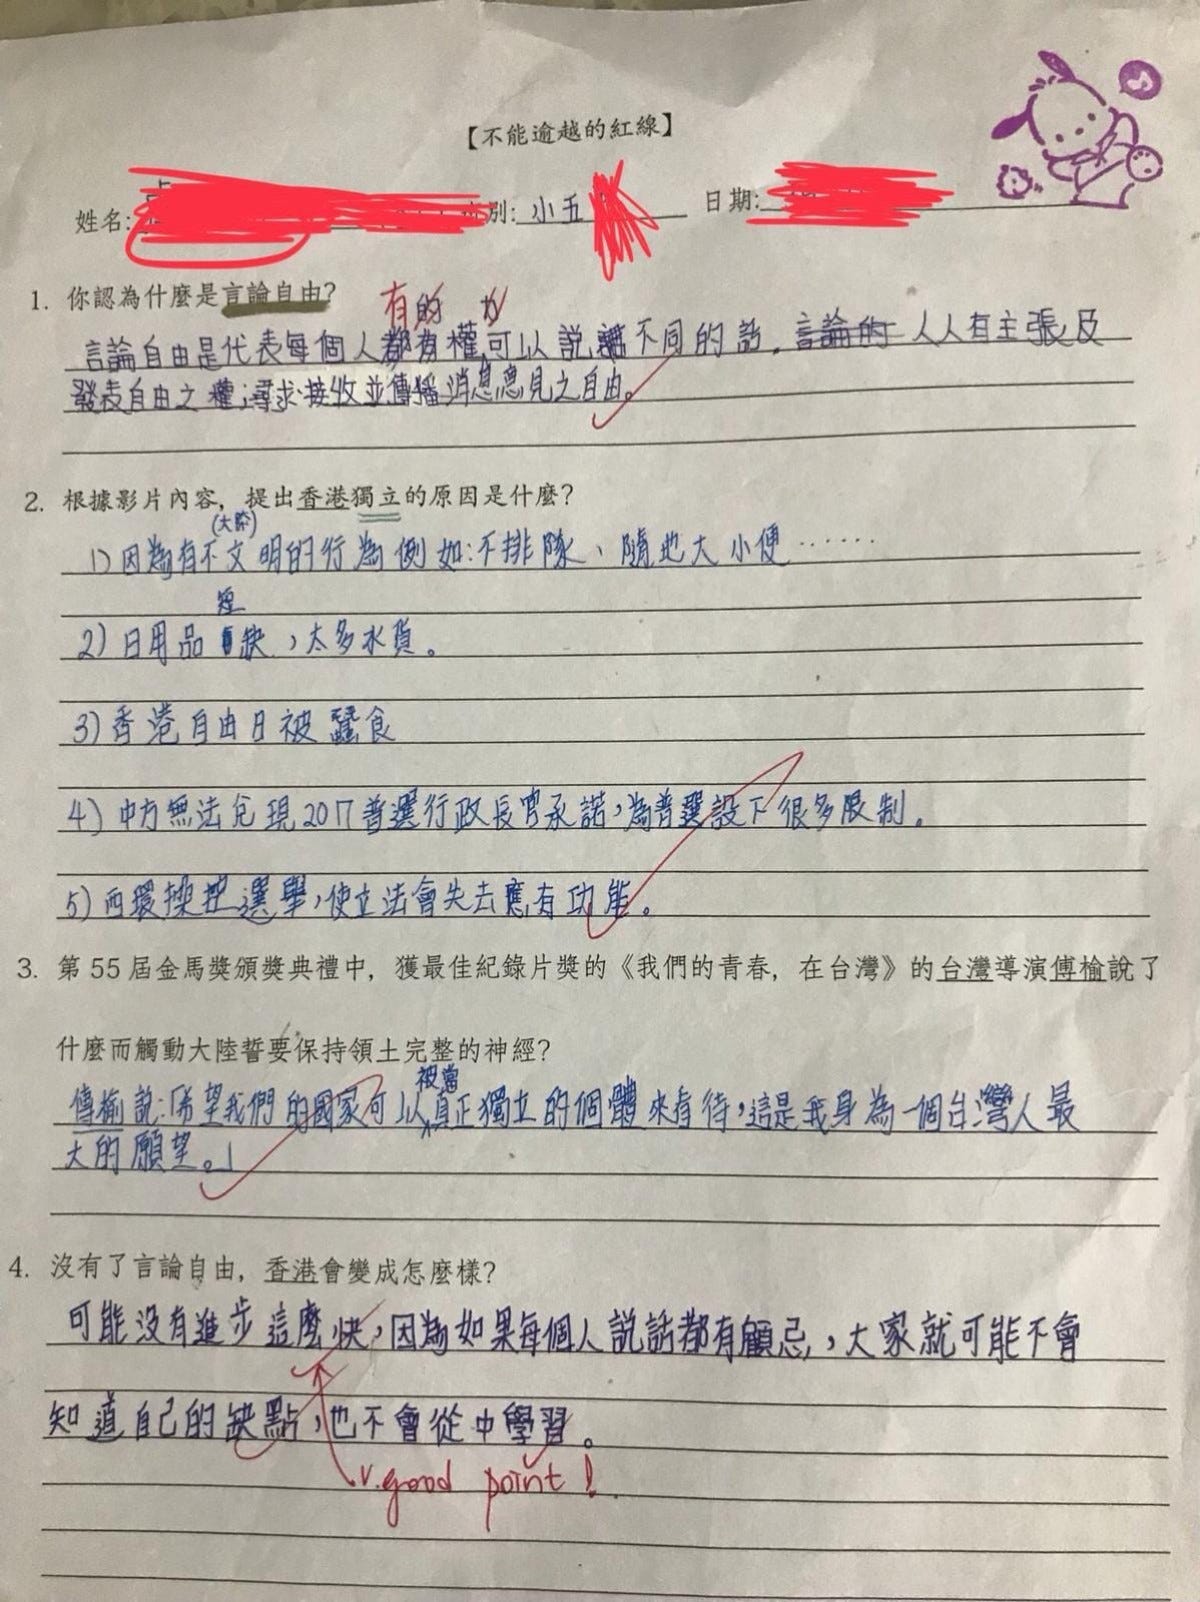 【不能逾越的紅線】
姓名: 別: 小五 日期:
1. 你認為什麼是言論自由?
有的
言論自由是代表每個人都有權可以說 不同的話。言論的 人人有主張及
發表自由之權;尋求接收並傳播消息意見之自由。
2. 根據影片內容，提出香港獨立的原因是什麼?
(大陸)
1) 因為有不文明的行為例如:不排隊、隨地大小便……
短
2) 日用品 缺，太多水貨。
3) 香港自由日被蠶食
4) 中方無法兌現2017普選行政長官承諾，為普選設下很多限制。
5) 西環操控選舉，使立法會失去應有功能。
3. 第 55 屆金馬獎頒獎典禮中，獲最佳紀錄片獎的《我們的青春，在台灣》的台灣導演傅榆說了
什麼而觸動大陸誓要保持領土完整的神經?
被當
傅榆說:「希望我們的國家可以真正獨立的個體來看待，這是我身為一個台灣人最
大的願望。」
4. 沒有了言論自由，香港會變成怎麼樣?
可能沒有進步這麼快，因為如果每個人說話都有顧忌，大家就可能不會
知道自己的缺點，也不會從中學習。
v.good point!